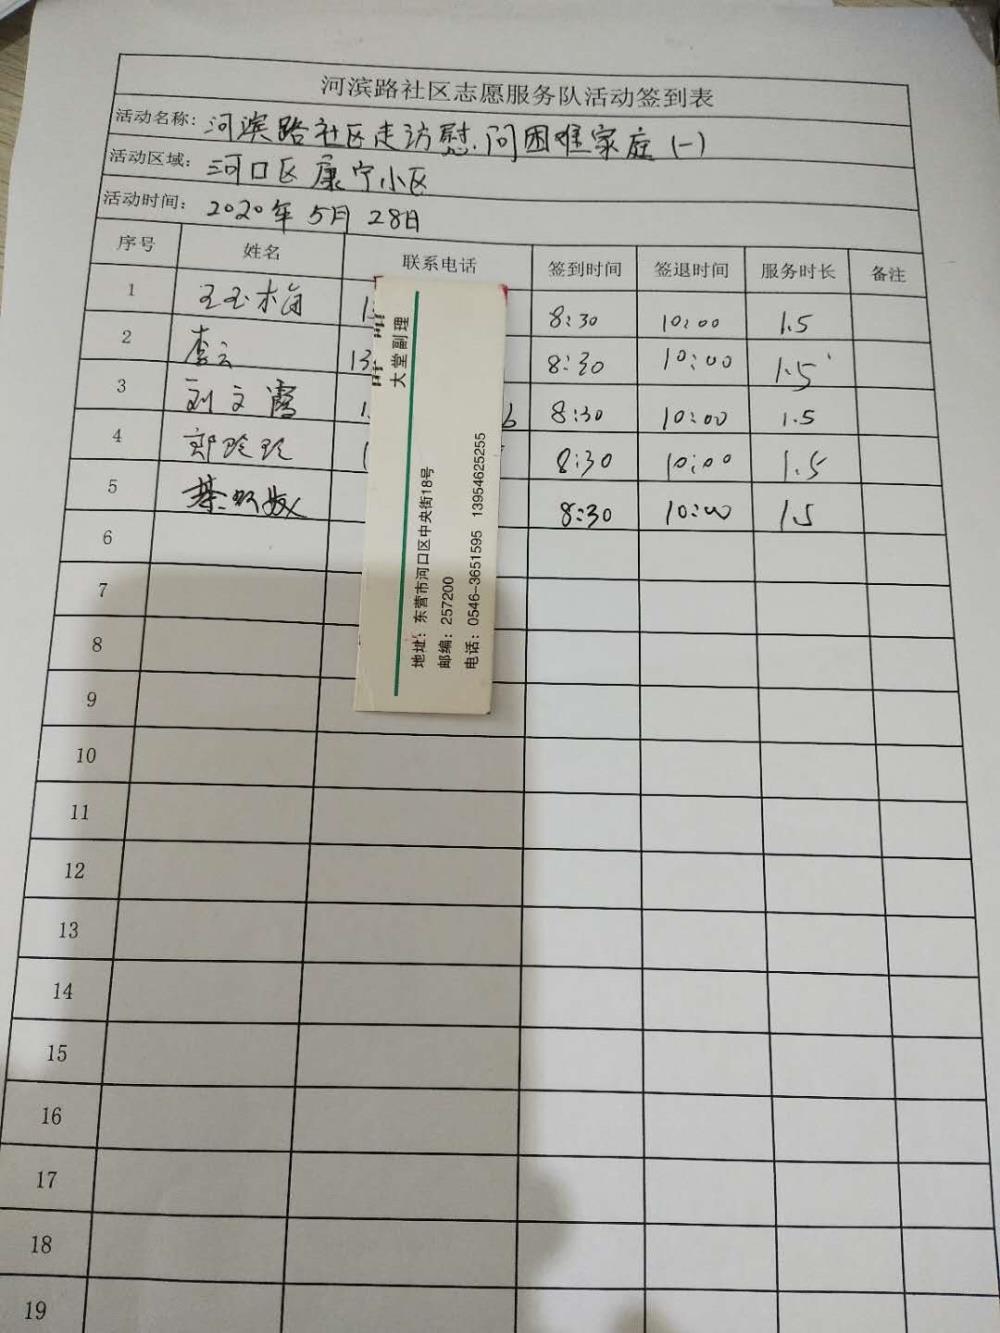 河滨路社区志愿服务队活动签到表
活动名称: 河滨路社区走访慰问困难家庭(一)
活动区域: 河口区康宁小区
活动时间: 2020年5月28日
序号 姓名 联系电话 签到时间 签退时间 服务时长 备注
1 王玉梅 8:30 10:00 1.5
2 李云 13 8:30 10:00 1.5
3 刘文霞 8:30 10:00 1.5
4 郭玲玲 8:30 10:00 1.5
5 8:30 10:00 1.5
6
7
8
9
10
11
12
13
14
15
16
17
18
19
大堂副理
地址: 东营市河口区中央街18号
邮编: 257200
电话: 0546-3651595 13954625255